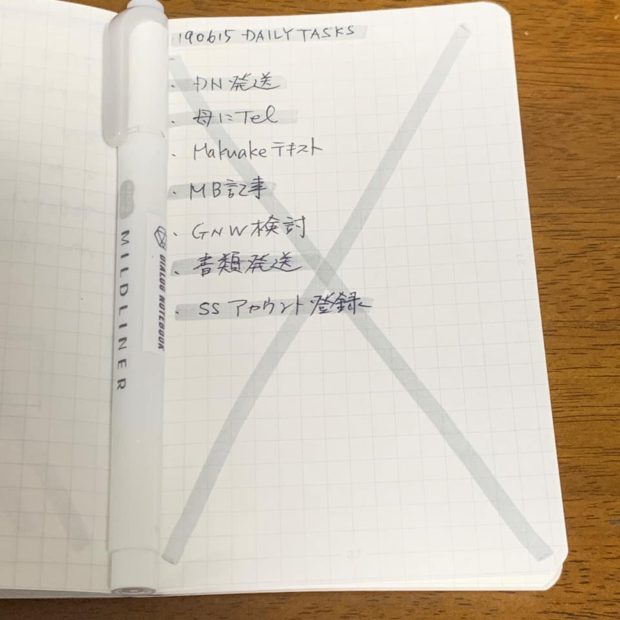 190615 DAILY TASKS
・DN発送
・母にTel
・Makuakeテキスト
・MB記事
・GNW検討
・書類発送
・SSアカウント登録
MILDLINER
DIALOG NOTEBOOK